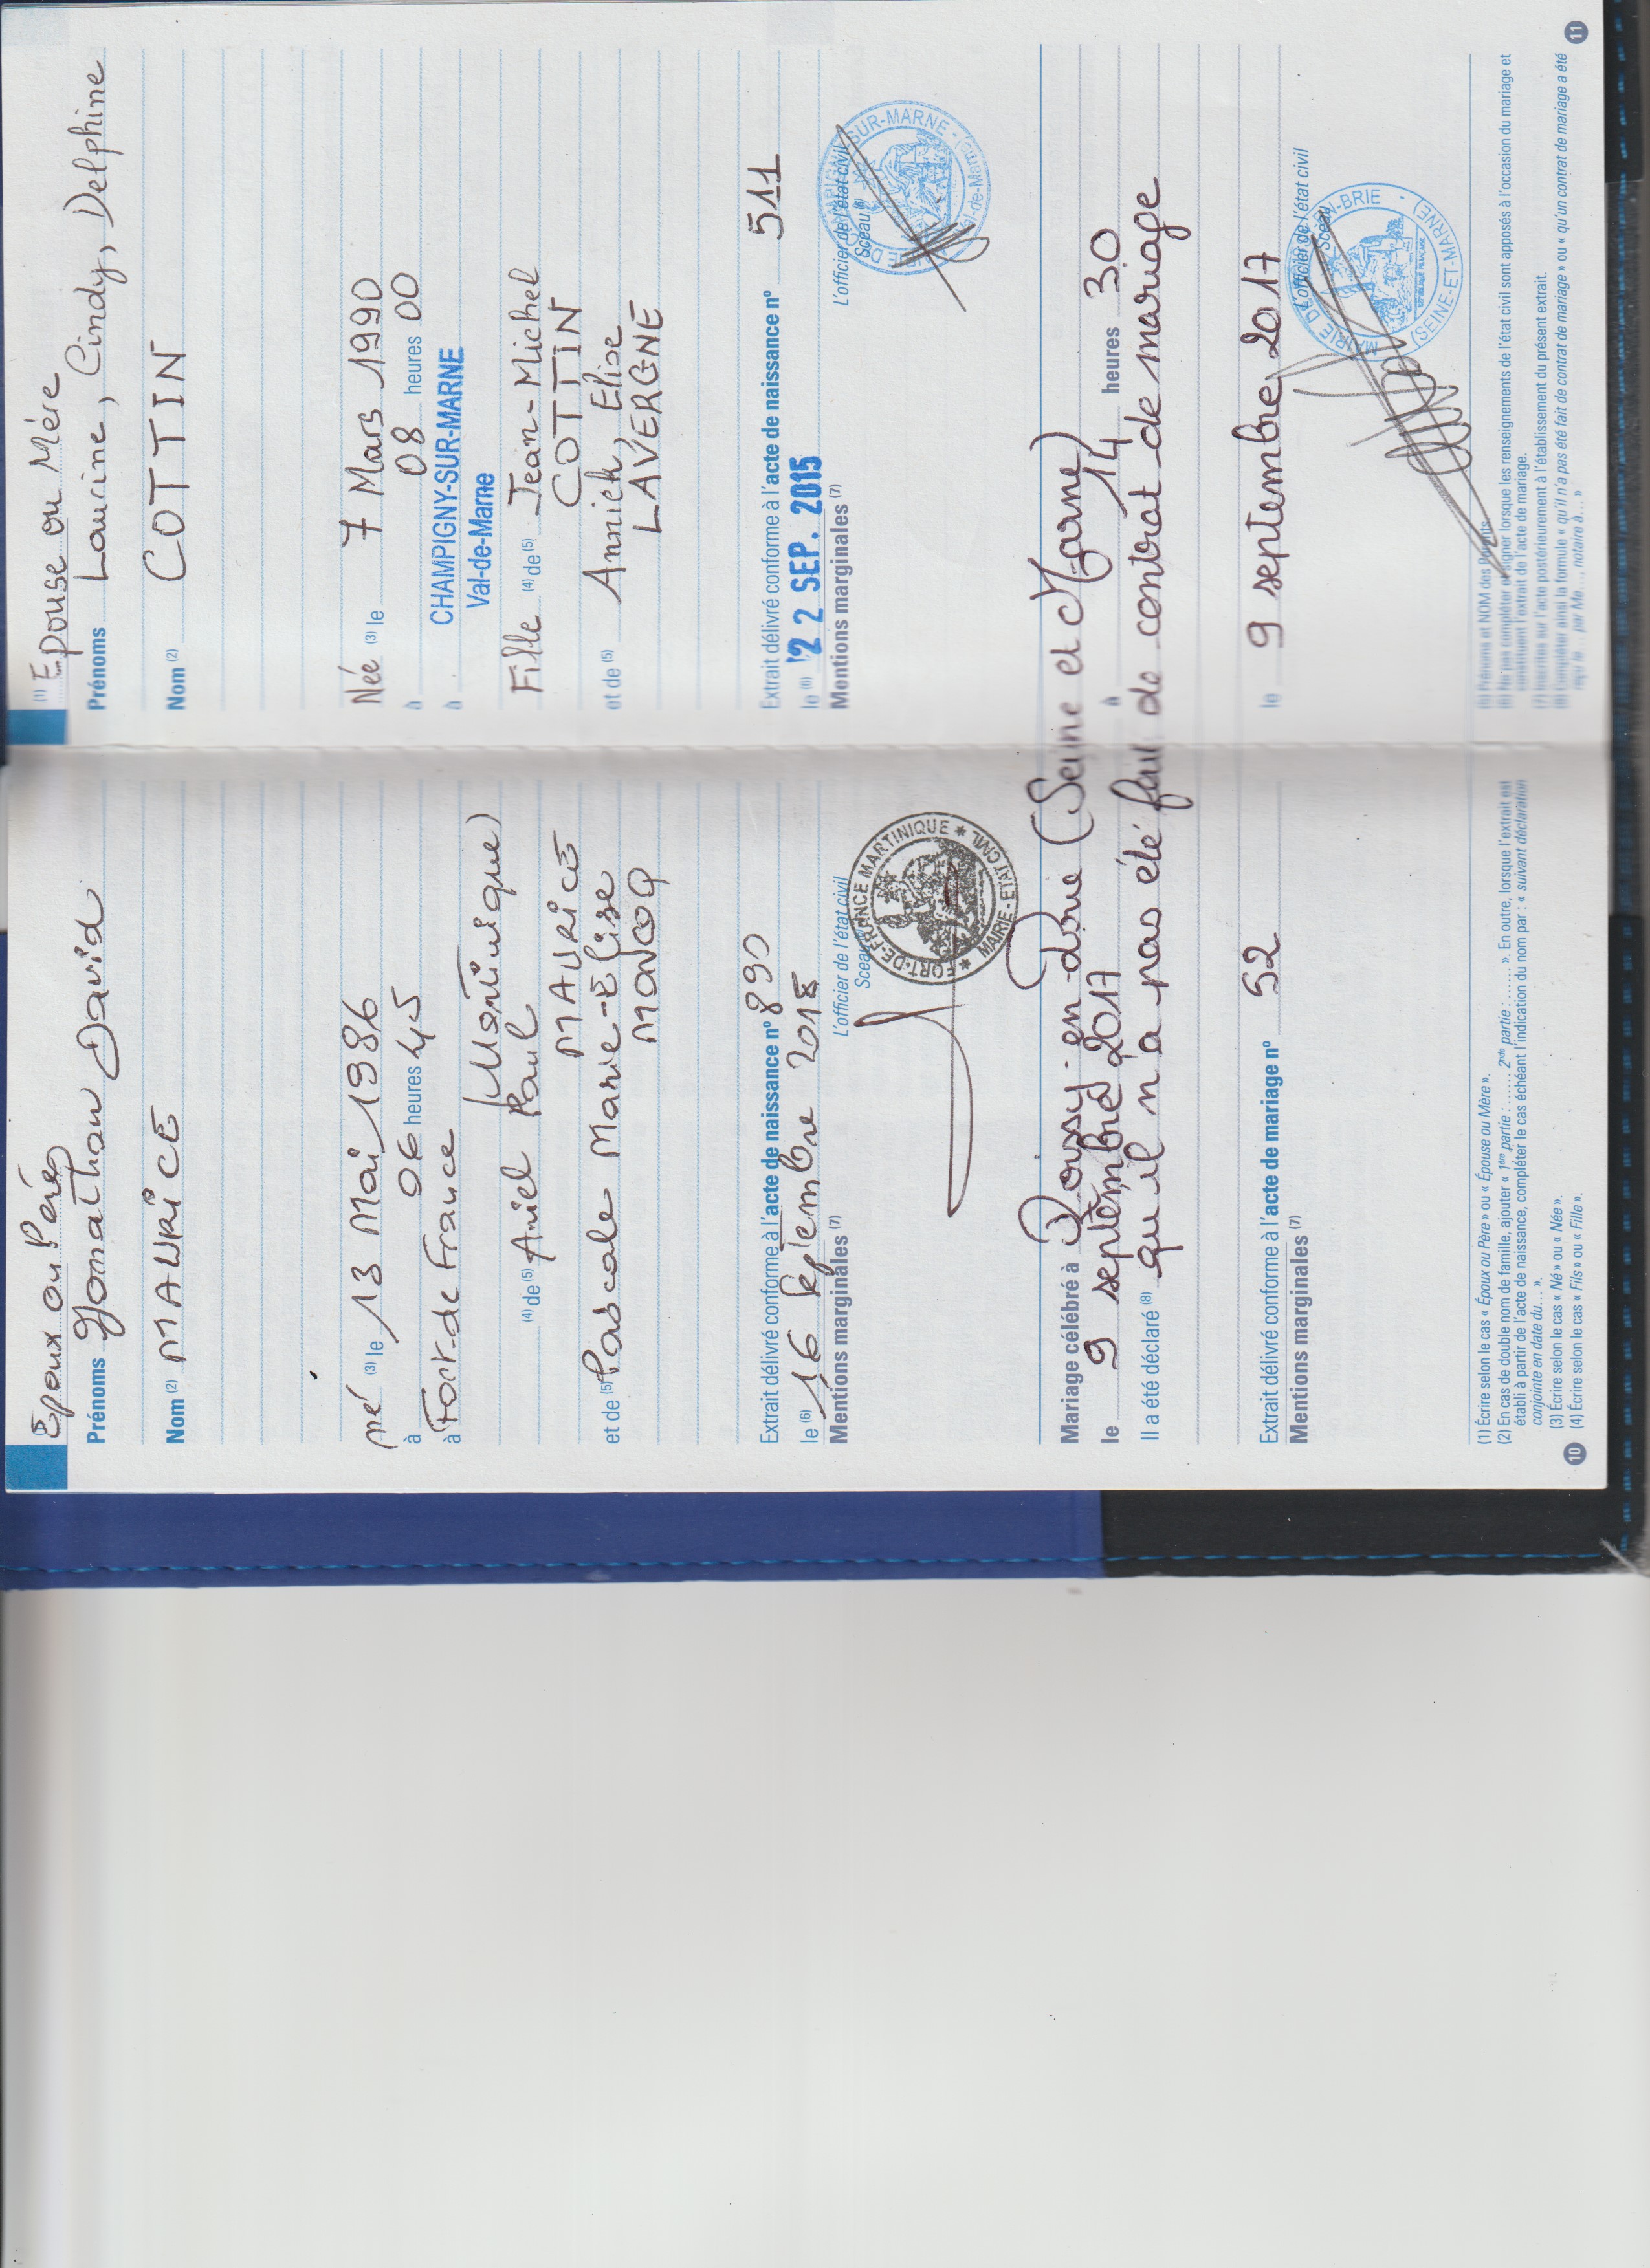 Epoux ou Père
Prénoms Yonathan David
Nom (2) MAURICE
né (3) le 13 Mai 1986
à 06 heures 45
à Fort-de-France
(Martinique)
(4) de (5) Ariel Paul
MAURICE
et de (5) Pascale Marie-Elise
MONDOR
Extrait délivré conforme à l'acte de naissance n° 890
le (6) 16 septembre 2015
Mentions marginales (7)
L'officier de l'état civil
Sceau
FORT-DE-FRANCE MARTINIQUE * MAIRIE - ETAT CIVIL *
(1) Epouse ou Mère
Prénoms Laurine, Cindy, Delphine
Nom (2) COTTIN
Née (3) le 7 Mars 1990
à 08 heures 00
à CHAMPIGNY-SUR-MARNE
Val-de-Marne
Fille (4) de (5) Jean-Michel
COTTIN
et de (5) Annick, Elise
LAVERGNE
Extrait délivré conforme à l'acte de naissance n° 511
le (6) 22 SEP. 2015
Mentions marginales (7)
L'officier de l'état civil
Sceau (6)
SUR-MARNE - (Val-de-Marne)
Mariage célébré à (Seine et Marne)
le 9 septembre 2017 à 14 heures 30
Il a été déclaré (8) qu'il n'a pas été fait de contrat de mariage
Extrait délivré conforme à l'acte de mariage n° 52 le 9 septembre 2017
Mentions marginales (7)
L'officier de l'état civil
Sceau
MAIRIE D EN-BRIE - (SEINE-ET-MARNE)
(1) Écrire selon le cas « Époux ou Père » ou « Épouse ou Mère ».
(2) En cas de double nom de famille, ajouter « 1ère partie : ...... 2nde partie : ...... ». En outre, lorsque l'extrait est
établi à partir de l'acte de naissance, compléter le cas échéant l'indication du nom par : « suivant déclaration
conjointe en date du... ».
(3) Écrire selon le cas « Né » ou « Née ».
(4) Écrire selon le cas « Fils » ou « Fille ».
10
(5) Prénoms et NOM des Parents.
(6) Ne pas compléter ni signer lorsque les renseignements de l'état civil sont apposés à l'occasion du mariage et
constituent l'extrait de l'acte de mariage.
(7) Inscrites sur l'acte postérieurement à l'établissement du présent extrait.
(8) Compléter ainsi la formule « qu'il n'a pas été fait de contrat de mariage » ou « qu'un contrat de mariage a été
reçu le... par Me..., notaire à... »
11